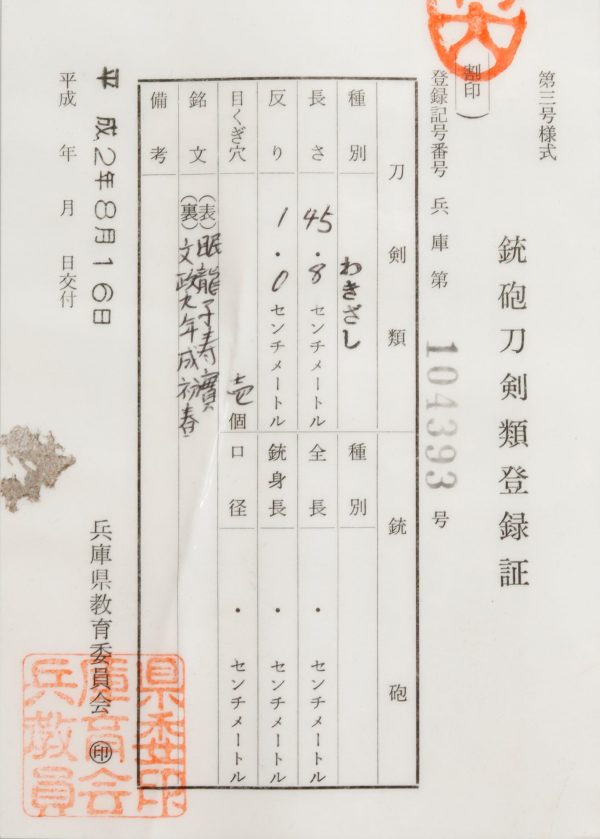 第三号様式
銃砲刀剣類登録証
割印
登録記号番号 兵庫第 104393 号
刀剣類
銃砲
種別 わきざし
長さ 45.8 センチメートル
反り 1.0 センチメートル
目くぎ穴 壱個
種別
全長 ・ センチメートル
銃身長 ・ センチメートル
口径 ・ センチメートル
銘文 (表)眠龍子寿實
(裏)文政九年戌初春
備考
平成2年8月16日
平成 年 月 日交付
兵庫県教育委員会 ㊞
兵庫県教育委員会印